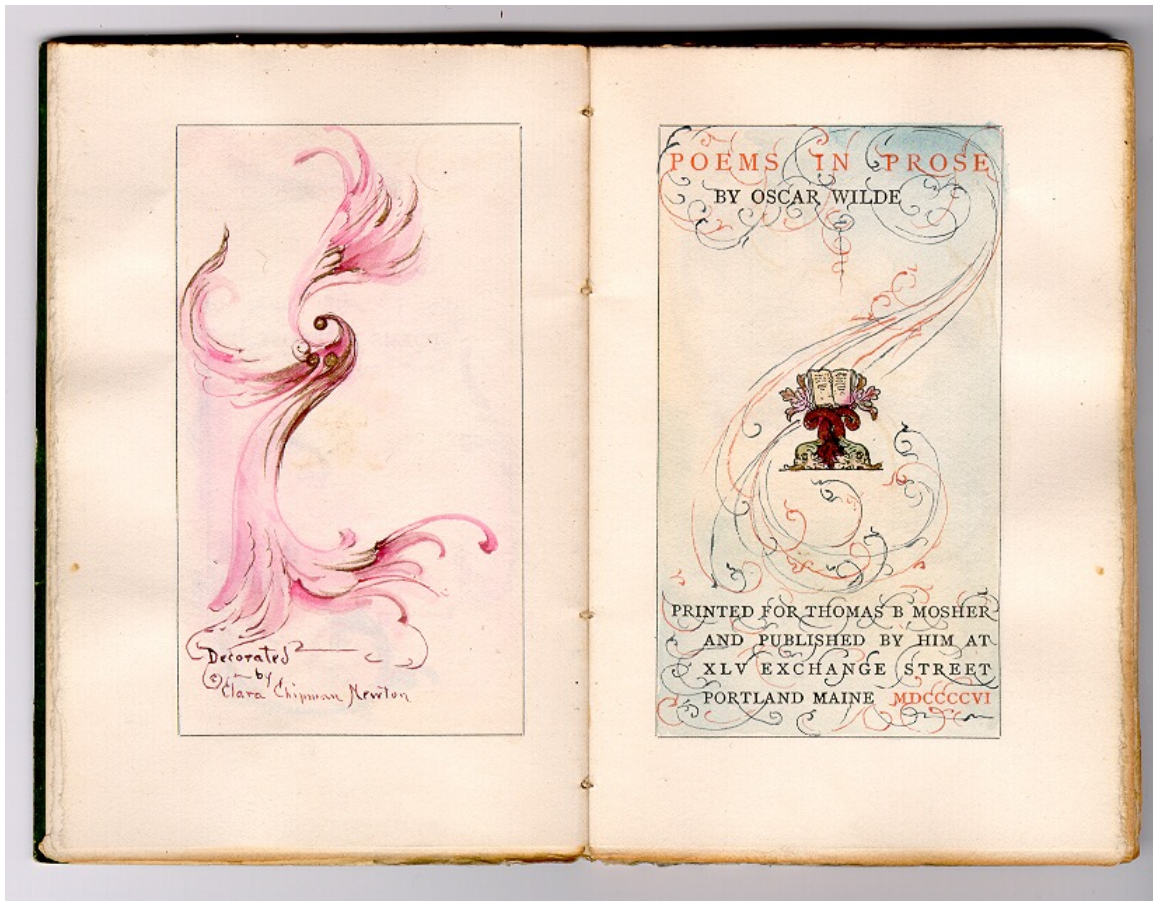 Decorated
by
Clara Chipman Newton
POEMS IN PROSE
BY OSCAR WILDE
PRINTED FOR THOMAS B MOSHER
AND PUBLISHED BY HIM AT
XLV EXCHANGE STREET
PORTLAND MAINE MDCCCCVI